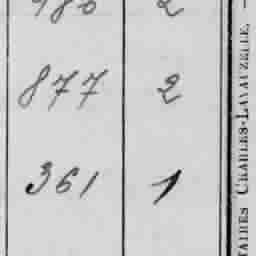 986 2
877 2
361 1
TAIRES CHARLES-LAVAUZELLE.